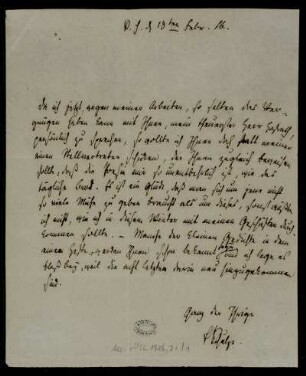 D. d. 13ten Febr. 16.
Da ich jetzt wegen meiner Arbeiten, so selten das Ver-
gnügen haben kann mit Ihnen, mein theuerster Herr
persönlich zu sprechen, so wollte ich Ihnen doch statt meiner
einen Stellvertreter schicken, der Ihnen zugleich beweisen
sollte, daß die Poesie mir so unentbehrlich ist, wie das
tägliche Brod. Es ist ein Glück, daß man sich um jene nicht
so viele Mühe zu geben braucht als um dieses, sonst wüßte
ich nicht, wie ich in diesem Winter mit meinen Geschäften durch
kommen sollte. – Manche der kleinen Gedichte in dem
einen Hefte, werden Ihnen schon bekannt und ich lege es
bloß bey, weil die acht letzten darin neu hinzugekommen
sind.
Ganz der Ihrige